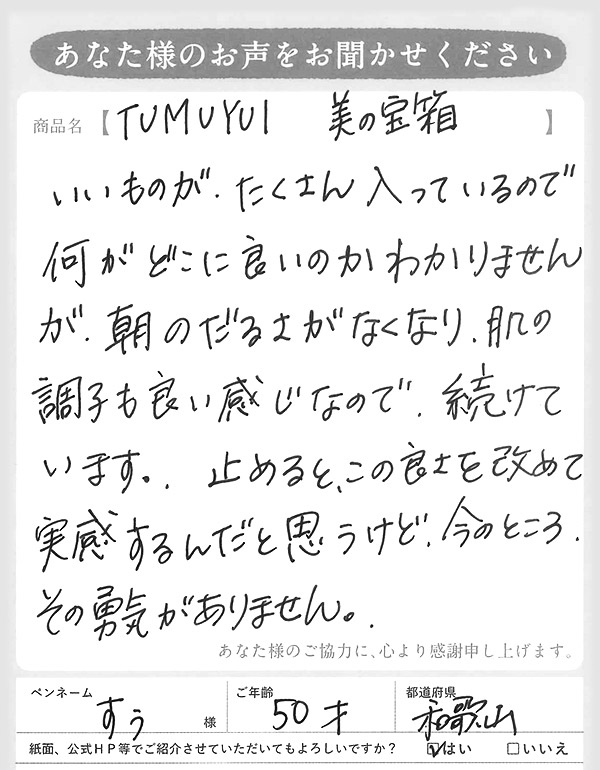 あなた様のお声をお聞かせください
商品名【TUMUYUI 美の宝箱】
いいものが、たくさん入っているので
何がどこに良いのかわかりません
が、朝のだるさがなくなり、肌の
調子も良い感じなので、続けて
います。. 止めると、この良さを改めて
実感するんだと思うけど、今のところ、
その勇気がありません。.
あなた様のご協力に、心より感謝申し上げます。
ペンネーム すぅ 様 ご年齢 50才 都道府県 和歌山
紙面、公式HP等でご紹介させていただいてもよろしいですか？ ☑はい □いいえ